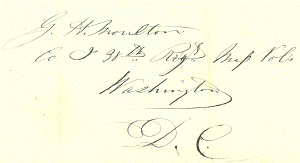 G. H. Moulton
Co I 38th Regt Mass Vols
Washington
D. C.